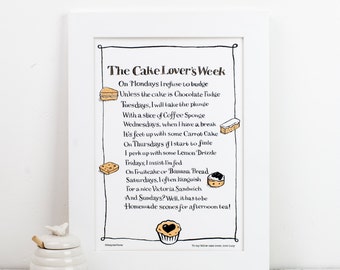 The Cake Lover's Week
On Mondays I refuse to budge
Unless the cake is Chocolate Fudge
Tuesdays, I will take the plunge
With a slice of Coffee Sponge
Wednesdays, when I have a break
It's feet up with some Carrot Cake
On Thursdays if I start to fizzle
I perk up with some Lemon Drizzle
Fridays, I insist I'm fed
On Fruitcake or Banana Bread
Saturdays, I often languish
For a nice Victoria Sandwich
And Sundays? Well, it has to be
Homemade scones for afternoon tea!